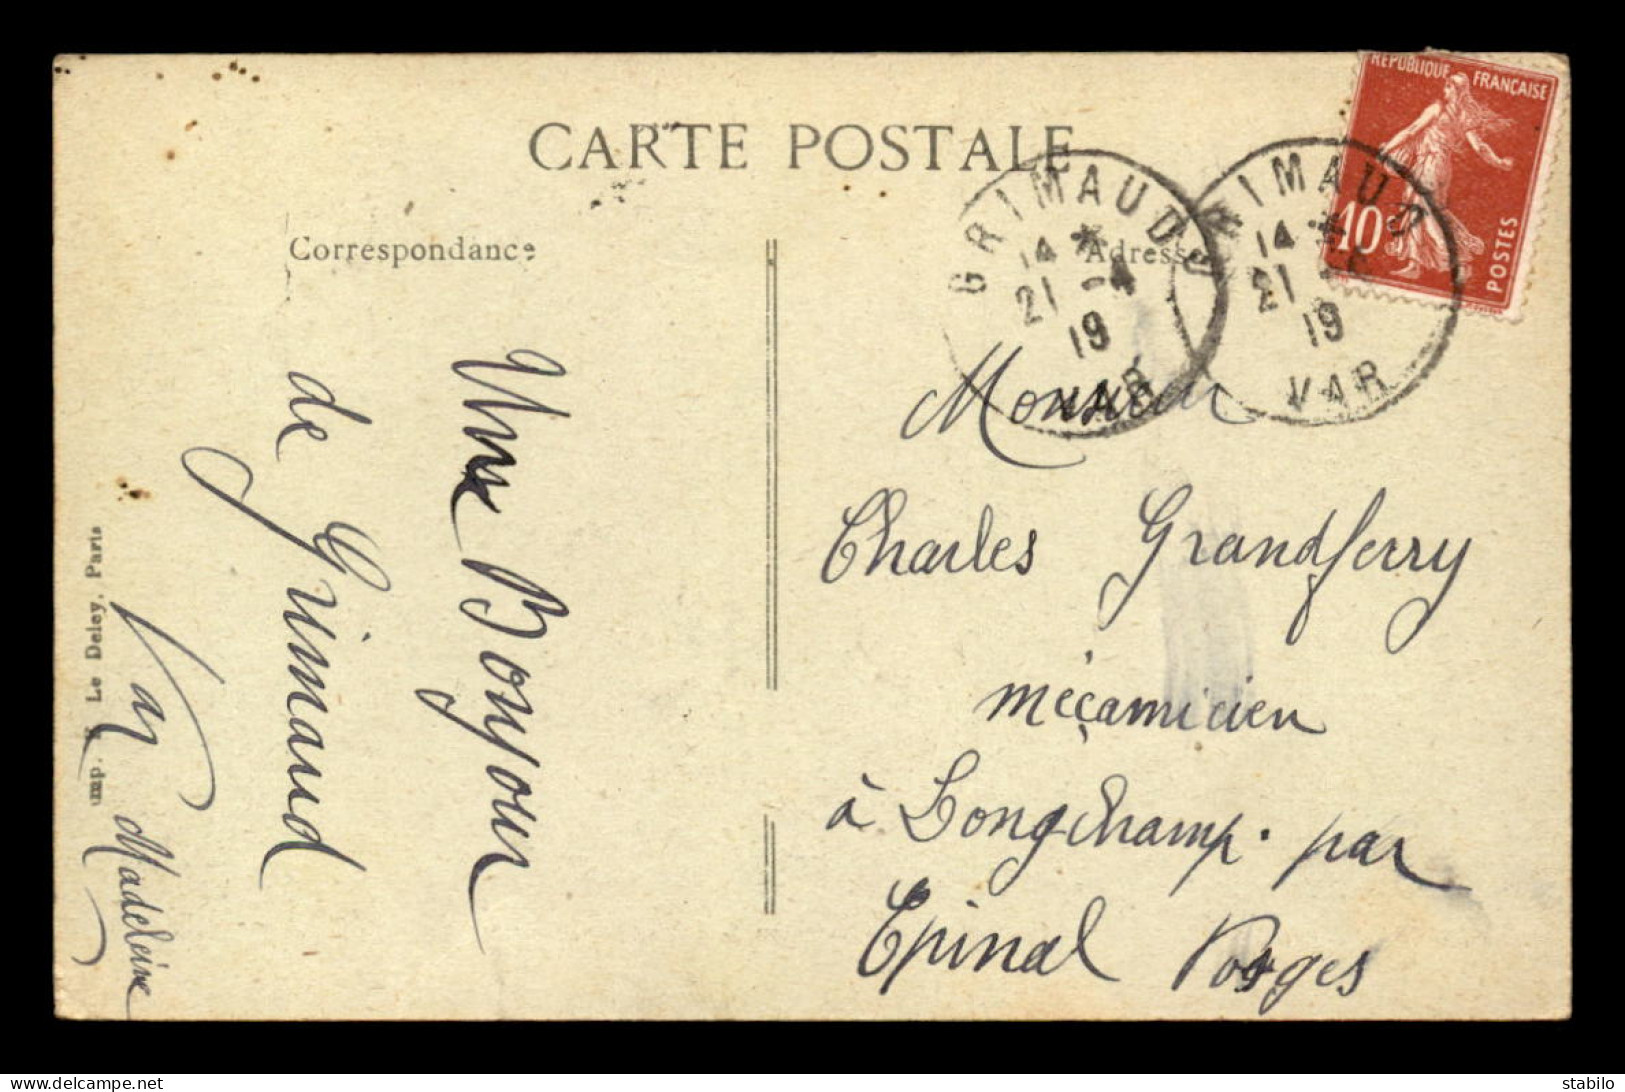 CARTE POSTALE
Correspondance
Adresse
RÉPUBLIQUE FRANÇAISE
10
POSTES
GRIMAUD
14 *
21 -4
19
VAR
GRIMAUD
14 *
21 -4
19
VAR
Une Bonjour
de Grimaud
Var
Madeleine
Imp. Le Deley, Paris
Monsieur
Charles Grandferry
méçanicien
à Longchamp. par
Epinal Vosges
stabilo